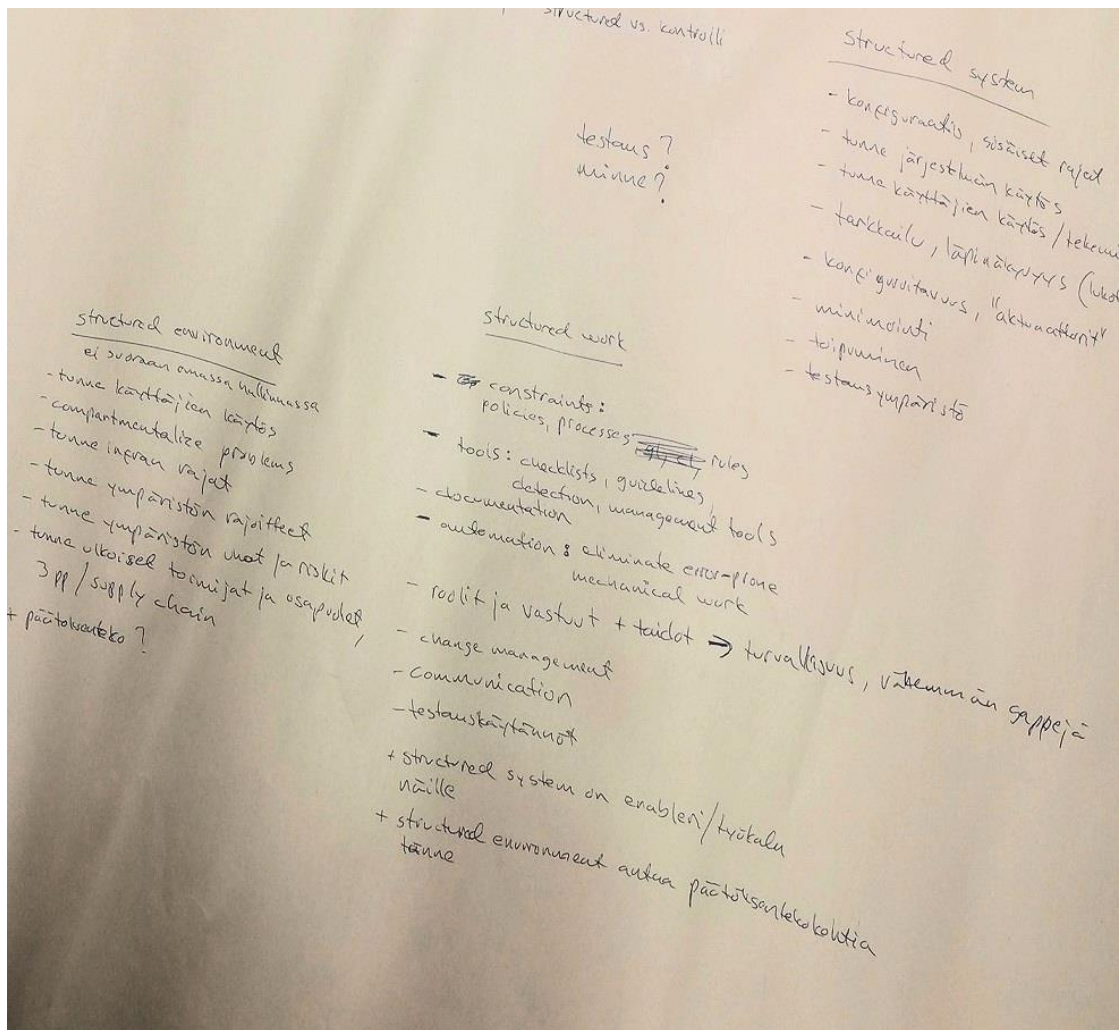 structured vs. kontrolli
testaus?
minne?
structured system
- konfiguraatio, sisäiset rajat
- tunne järjestelmän käytös
- tunne käyttäjien käytös / tekemi
- tarkkailu, läpinäkyvyys (lukot
- konfiguroitavuus, "aktuaattorit"
- minimointi
- toipuminen
- testausympäristö
structured environment
ei suoraan omassa hallinnassa
- tunne käyttäjien käytös
- compartmentalize problems
- tunne infran rajat
- tunne ympäristön rajoitteet
- tunne ympäristön uhat ja riskit
- tunne ulkoiset toimijat ja osapuolet,
3pp / supply chain
+ päätöksenteko?
structured work
- constraints:
policies, processes, rules
- tools: checklists, guidelines,
detection, management tools
- documentation
- automation: eliminate error-prone
mechanical work
- roolit ja vastuut + taidot → turvallisuus, vähemmän gappejä
- change management
- communication
- testauskäytännöt
+ structured system on enableri/työkalu
näille
+ structured environment antaa päätöksentekokohtia
tänne